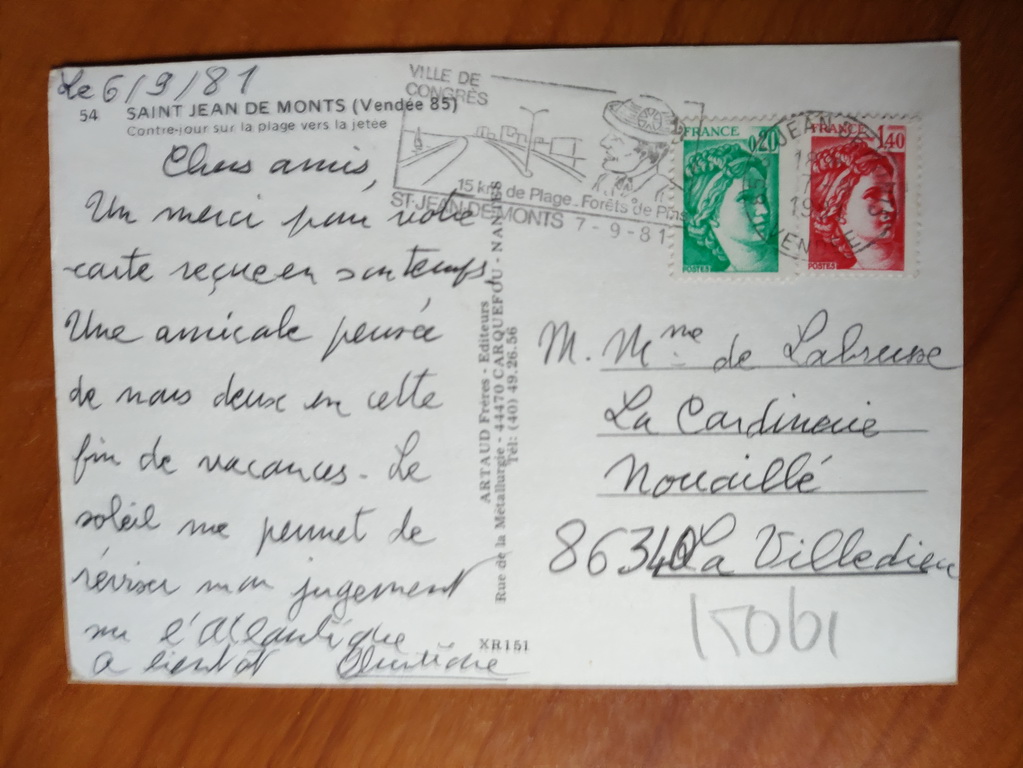 Le 6/9/81
54 SAINT JEAN DE MONTS (Vendée 85)
Contre-jour sur la plage vers la jetée
Chers amis,
Un merci pour votre
carte reçue en son temps
Une amicale pensée
de nous deux en cette
fin de vacances - Le
soleil me permet de
réviser mon jugement
sur l'Atlantique
A bientôt
ARTAUD Frères - Editeurs
Rue de la Métallurgie - 44470 CARQUEFOU - NANTES
Tél: (40) 49.26.56
XR151
VILLE DE
CONGRÈS
15 km de Plage. Forêts de Pins
ST-JEAN-DE-MONTS 7-9-81
FRANCE
0,20
POSTES
FRANCE
1,40
POSTES
M. Mme de Labrusse
La Cardinerie
Nouaillé
86340 La Villedieu